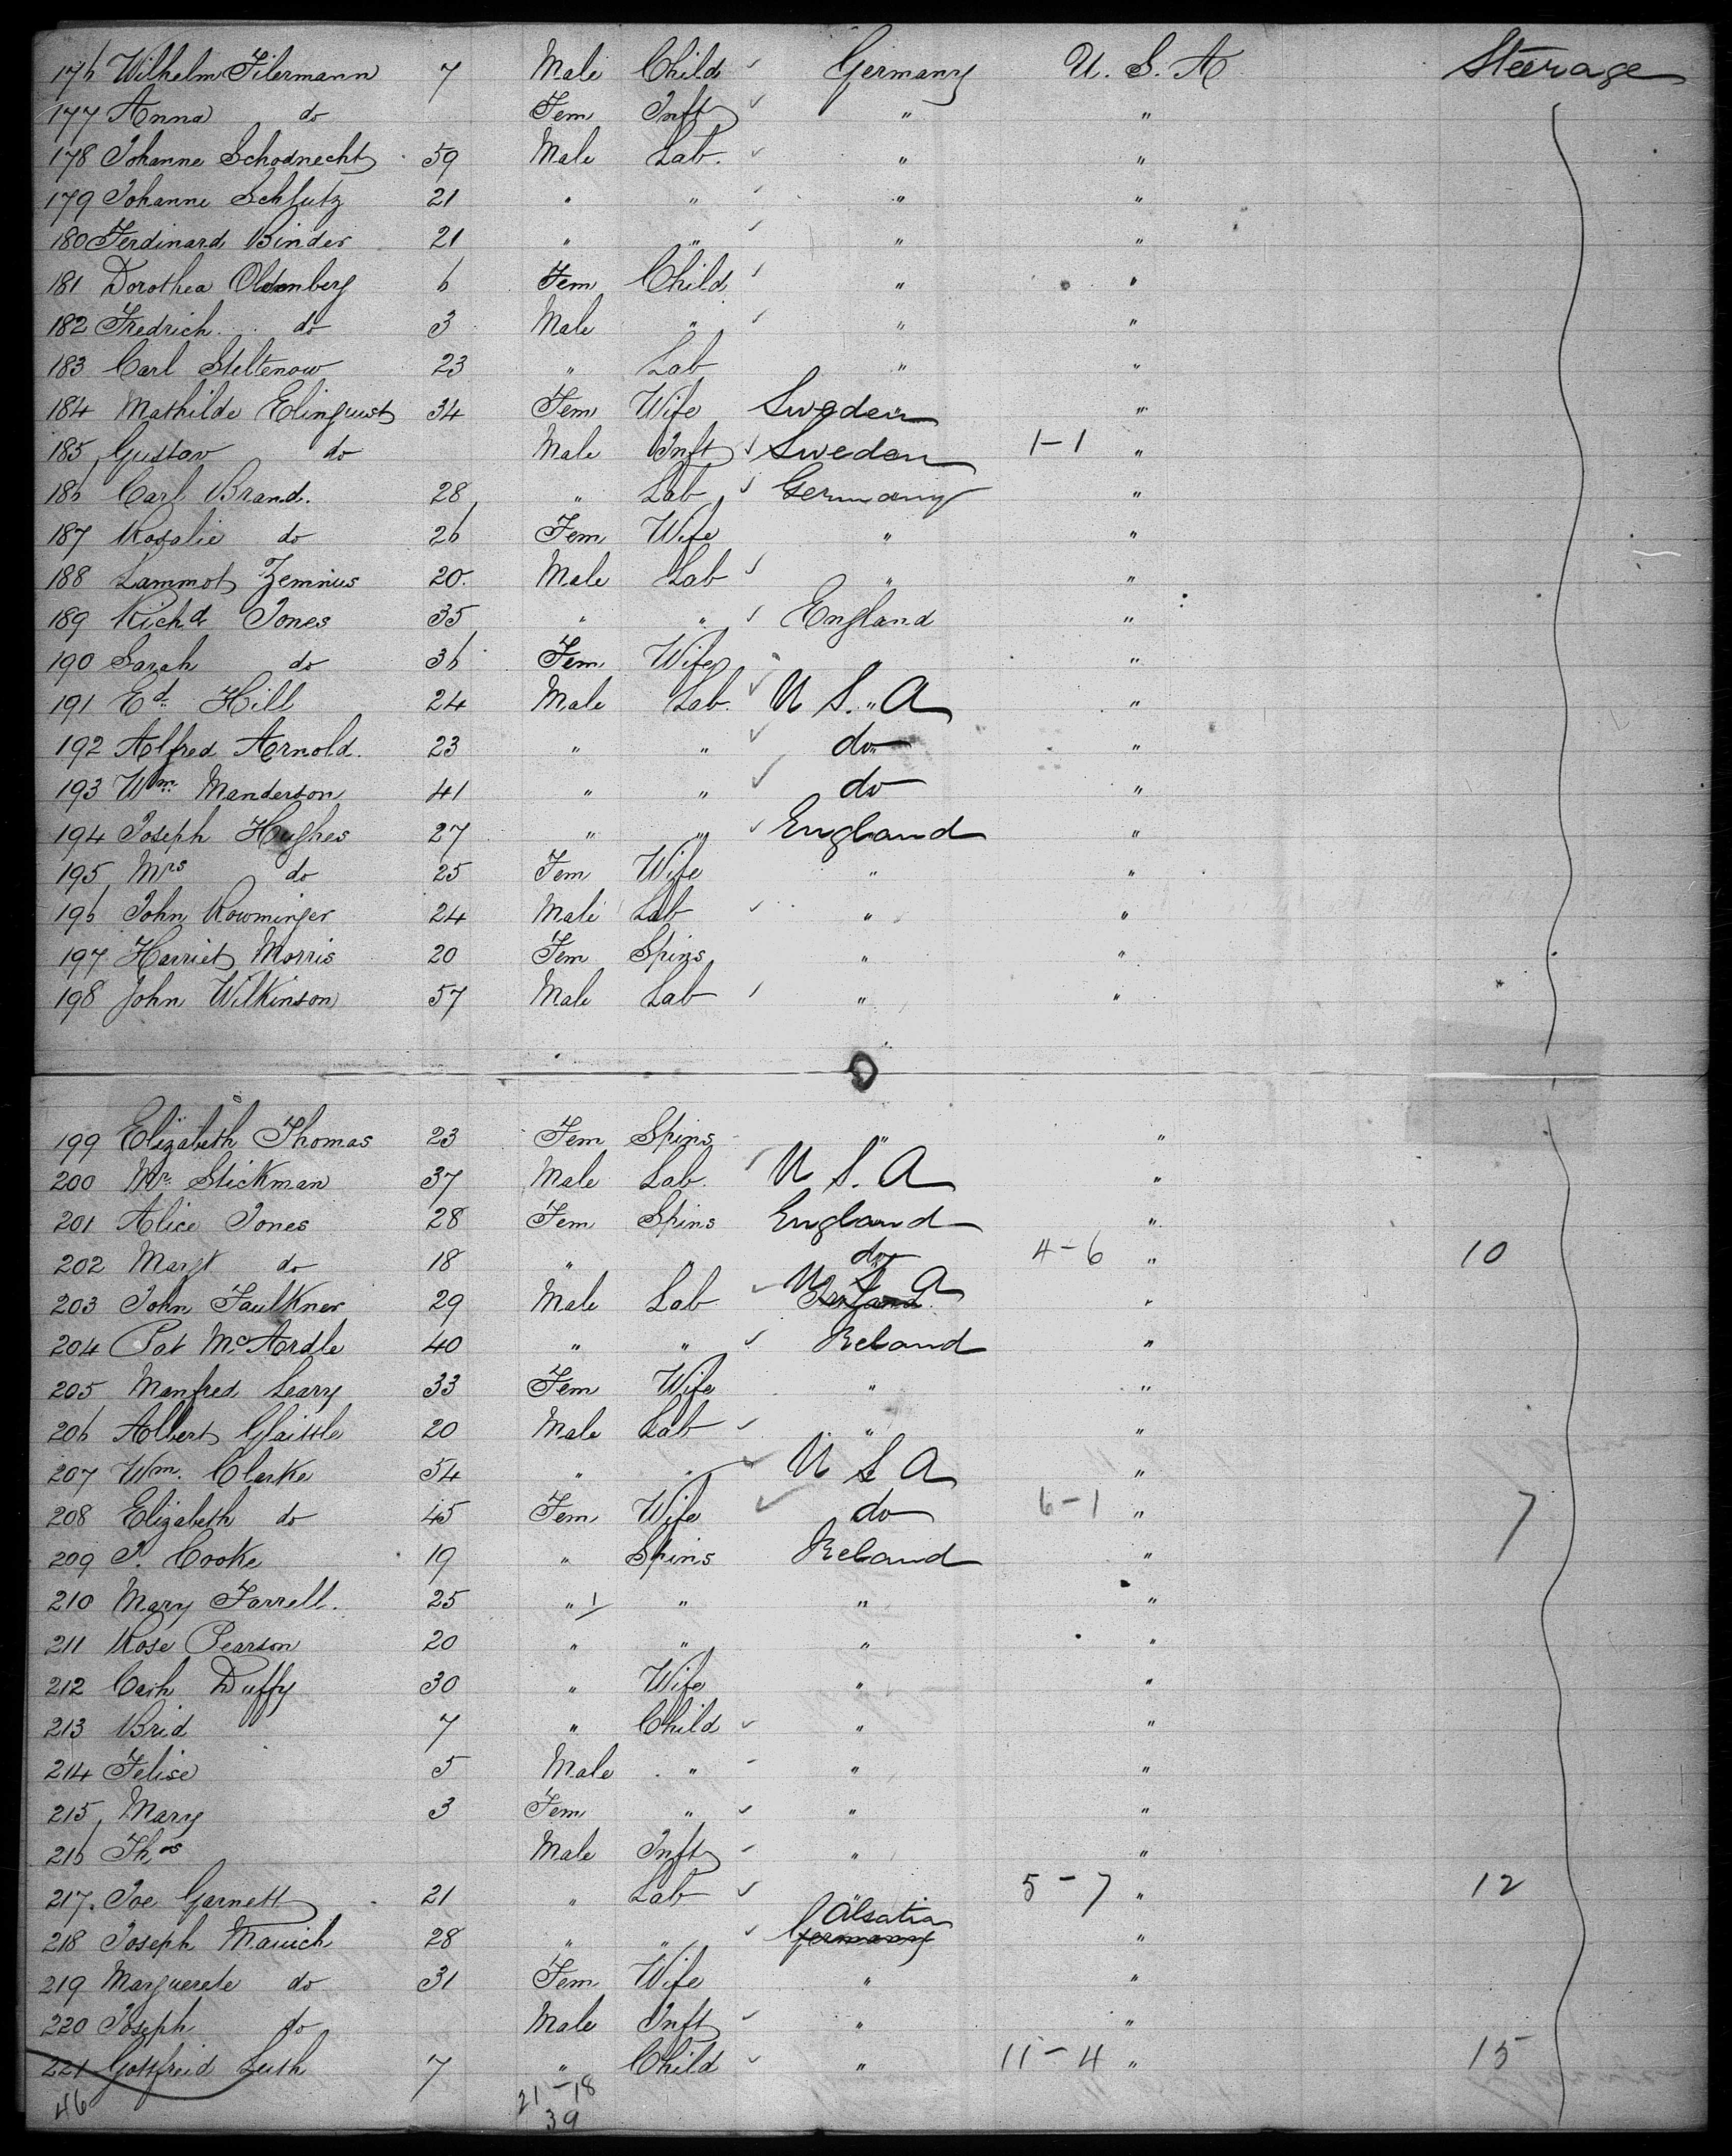 176 Wilhelm Filermann 7 Male Child Germany U. S. A Steerage
177 Anna do Fem Inft " "
178 Johanne Schodnecht 59 Male Lab. " "
179 Johanne Schlutz 21 " " " "
180 Ferdinard Binder 21 " " " "
181 Dorothea Oldenberg 6 Fem Child " "
182 Fredrich do 3 Male " " "
183 Carl Steltenow 23 " Lab " "
184 Mathilde Elinquist 34 Fem Wife Sweden "
185 Gustav do Male Inft Sweden 1-1 "
186 Carl Brand. 28 " Lab Germany "
187 Rosalie do 26 Fem Wife " "
188 Lammot Zemnius 20. Male Lab " "
189 Richd Jones 35 " " England "
190 Sarah do 36 Fem Wife " "
191 Ed Hill 24 Male Lab. U S. A "
192 Alfred Arnold. 23 " " do "
193 Wm Manderson 41 " " do "
194 Joseph Hughes 27 " " England "
195 Mrs do 25 Fem Wife " "
196 John Rowminger 24 Male Lab " "
197 Harriet Morris 20 Fem Spins " "
198 John Wilkinson 57 Male Lab " "
199 Elizabeth Thomas 23 Fem Spins " "
200 Mr Stickman 37 Male Lab. U S. A "
201 Alice Jones 28 Fem Spins England "
202 Margt do 18 " " do 4-6 " 10
203 John Faulkner 29 Male Lab U S A Ireland "
204 Pat McArdle 40 " " Ireland "
205 Manfred Leary 33 Fem Wife " "
206 Albert Glaittle 20 Male Lab " "
207 Wm. Clarke 54 " " U S A "
208 Elizabeth do 45 Fem Wife do 6-1 " 7
209 J. Cooke 19 " Spins Ireland "
210 Mary Farrell. 25 " " " "
211 Rose Pearson 20 " " " "
212 Cath Duffy 30 " Wife " "
213 Brid 7 " Child " "
214 Felise 5 Male " " "
215 Mary 3 Fem " " "
216 Thos Male Inft " "
217. Joe Garnett 21 " Lab " 5-7 " 12
218 Joseph Mauich 28 " " Alsatia Germany "
219 Marguerete do 31 Fem Wife " "
220 Joseph do Male Inft " "
221 Gottfreid Leith 7 " Child " 11-4 " 15
46 21-18
39